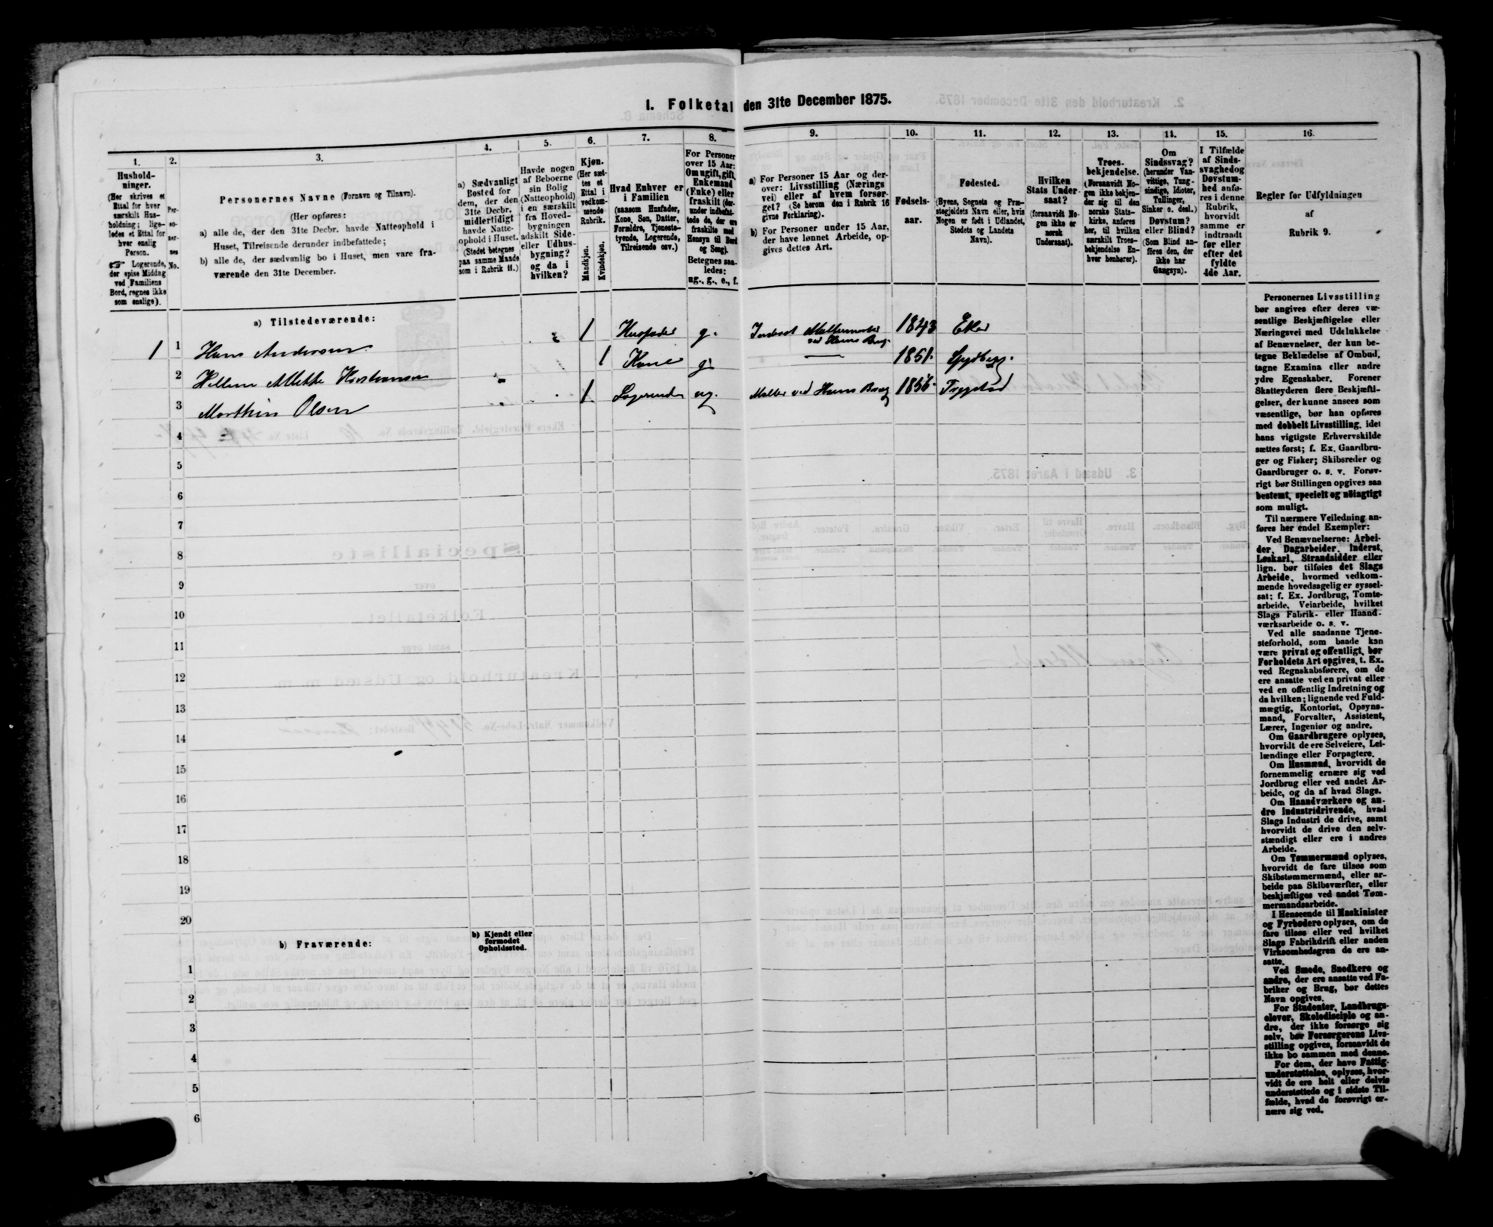 I. Folketal den 31te December 1875.
1.
Hushold-
ninger.
(Her skrives et
Ettal for hver
særskilt Hus-
holdning; lige-
ledes et Ettal for
hver enslig
Person.
☞ Logerende,
der spise Middag
ved Familiens
Bord, regnes ikke
som enslige).
2.
Per-
so-
ner-
nes
No.
3.
Personernes Navne (Fornavn og Tilnavn).
(Her opføres:
a) alle de, der den 31te Decbr. havde Natteophold i
Huset, Tilreisende derunder indbefattede;
b) alle de, der sædvanlig bo i Huset, men vare fra-
værende den 31te December.
4.
a) Sædvanligt
Bosted for
dem, der den
31te Decbr.
midlertidigt
havde Natte-
ophold i Huset.
(Stedet betegnes
paa samme Maade
som i Rubrik 11.)
5.
Havde nogen
af Beboerne
sin Bolig
(Natteophold)
i en særskilt
fra Hoved-
bygningen
adskilt Side-
eller Udhus-
bygning?
og da i
hvilken?
6.
Kjøn.
(Her sæt-
tes et
Ettal i
vedkom-
mende
Rubrik.
Mandkjøn.
Kvindekjøn.
7.
Hvad Enhver er
i Familien
(saasom Husfader,
Kone, Søn, Datter,
Forældre, Tjeneste-
tyende, Logerende,
Tilreisende osv.)
8.
For Personer
over 15 Aar:
Om ugift, gift,
Enkemand
(Enke) eller
fraskilt (der-
under indbefat-
tede de, der ere
fraskilte med
Hensyn til Bord
og Seng).
Betegnes saa-
ledes:
ug., g., e., f.
9.
a) For Personer 15 Aar og der-
over: Livsstilling (Nærings
vei) eller af hvem forsør-
get? (Se herom den i Rubrik 16
givne Forklaring).
b) For Personer under 15 Aar,
der have lønnet Arbeide, op-
gives dettes Art.
10.
Fødsels-
aar.
11.
Fødested.
(Byens, Sognets og Præ-
stegjeldets Navn eller, hvis
Nogen er født i Udlandet,
Stedets og Landets
Navn).
12.
Hvilken
Stats Under-
saat?
(foraavidt No-
gen ikke er
norsk
Undersaat).
13.
Troes-
bekjendelse.
(Foraavidt No-
gen ikke bekjen-
der sig til den
norske Stats-
kirke, anføres
her, til hvilken
særskilt Troes-
bekjendelse En-
hver henhører).
14.
Om
Sindssvag?
(herunder Van-
vittige, Tung-
sindige, Idioter,
Tullinger,
Sinker o. desl.)
Døvstum?
eller Blind?
(Som Blind an-
føres den, der
ikke har
Gangsyn).
15.
I Tilfælde
af Sinds-
svaghed og
Døvstum-
hed anfø-
res i denne
Rubrik,
hvorvidt
samme er
indtraadt
før eller
efter det
fyldte
4de Aar.
16.
Regler for Udfyldningen
af
Rubrik 9.
a) Tilstedeværende:
1 1 Hans Andersen 1 Husfader g. 1843 Eker
2 1 Kone g. 1851. Spydberg.
3 Marthin Olsen 1 Logerende ug. 1856. Trygstad
4
5
6
7
8
9
10
11
12
13
14
15
16
17
18
19
20
b) Fraværende:
b) Kjendt eller
formodet
Opholdssted.
1
2
3
4
5
6
Personernes Livsstilling
bør angives efter deres væ-
sentlige Beskjæftigelse eller
Næringsvei med Udelukkelse
af Benævnelser, der kun be-
tegne Beklædelse af Ombud,
tagne Examina eller andre
ydre Egenskaber. Forener
Skatteyderen flere Beskjæfti-
gelser, der kunne ansees som
væsentlige, bør han opføres
med dobbelt Livsstilling, idet
hans vigtigste Erhvervskilde
sættes først; f. Ex. Gaardbru-
ger og Fisker; Skibsreder og
Gaardbruger o. s. v. Forøv-
rigt bør Stillingen opgives saa
bestemt, specielt og nøiagtigt
som muligt.
Til nærmere Veiledning an-
føres her endel Exempler:
Ved Benævnelserne: Arbei-
der, Dagarbeider, Inderst,
Løskarl, Strandsidder eller
lign. bør tilføies det Slags
Arbeide, hvormed vedkom-
mende hovedsagelig er syssel-
sat; f. Ex. Jordbrug, Tomte-
arbeide, Veiarbeide, hvilket
Slags Fabrik- eller Haand-
værksarbeide o. s. v.
Ved alle saadanne Tjene-
steforhold, som baade kan
være privat og offentligt, bør
Forholdets Art opgives, t. Ex.
ved Regnskabsførere, om de
ere ansatte ved en privat eller
ved en offentlig Indretning og
da hvilken; lignende ved Fuld-
mægtig, Kontorist, Opsyns-
mand, Forvalter, Assistent,
Lærer, Ingeniør og andre.
Om Gaardbrugere oplyses,
hvorvidt de ere Selveiere, Lei-
lændinge eller Forpagtere.
Om Husmænd, hvorvidt de
fornemmelig ernære sig ved
Jordbrug eller ved andet Ar-
beide, og da af hvad Slags.
Om Haandværkere og an-
dre Industridrivende, hvad
Slags Industri de drive, samt
hvorvidt de drive den selv-
stændigt eller ere i andres
Arbeide.
Om Tømmermænd oplyses,
hvorvidt de fare tilsøs som
Skibstømmermænd, eller ar-
beide paa Skibsværfter, eller
beskjæftiges ved andet Tøm-
mermandsarbeide.
I Henseende til Maskinister
og Fyrbødere oplyses, om de
fare tilsøs eller ved hvilket
Slags Fabrikdrift eller anden
Virksomhedsgren de ere an-
satte.
Ved Smede, Snedkere og
andre, der ere ansatte ved Fa-
briker og Brug, bør dettes
Navn opgives.
For Studenter, Landbrugs-
elever, Skoledisciple og an-
dre, der ikke forsørge sig
selv, bør Forsørgerens Livs-
stilling opgives, forsaavidt de
ikke bo sammen med denne.
For dem, der have Fattig-
understøttelse, oplyses, hvor-
vidt de ere helt eller delvis
understøttede og i sidste Til-
fælde, hvad de forøvrigt er-
nære sig ved.